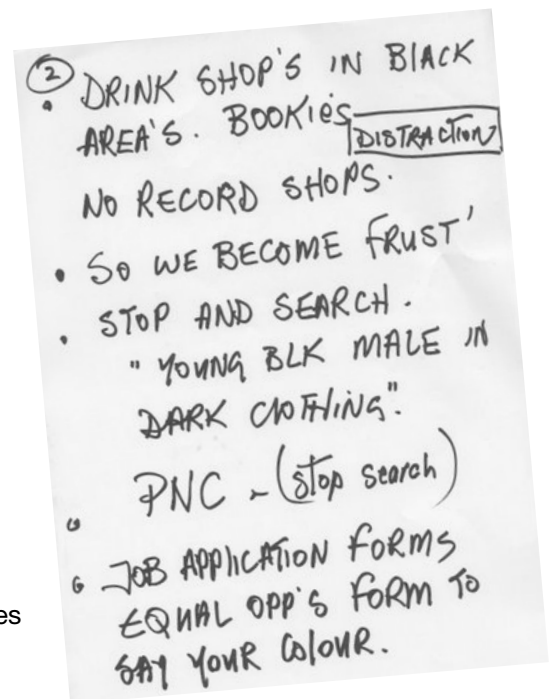 ②
• DRINK SHOP'S IN BlACK
AREA'S. BOOKIES
DISTRACTION
NO RECORD SHOPS.
• SO WE BECOME FRUST'
• STOP AND SEARCH.
"YOUNG BLK MALE IN
DARK ClOTHING".
PNC - (stop search)
• JOB APPlICATION FORMS
EQUAL OPP'S FORM TO
SAY YOUR COlOUR.
es